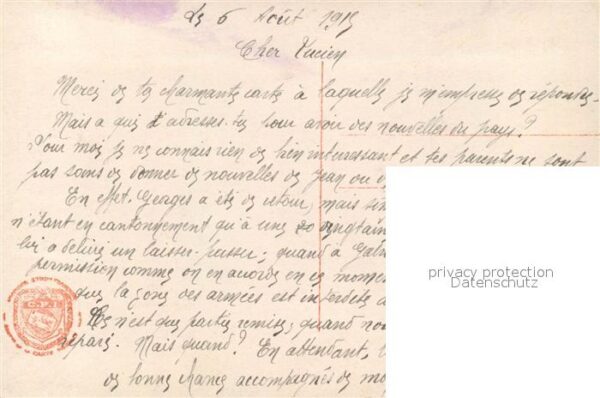 Le 6 Août 1915
Cher Lucien
Merci de ta charmante carte à laquelle je m'empresse de répondre.
Mais à qui t'adresses-tu pour avoir des nouvelles du pays?
Pour moi je ne connais rien de bien intéressant et tes parents ne sont
pas sans de donner de nouvelles de Jean ou
En effet Georges a été de retour, mais
n'étant en cantonnement qu'à une 20 vingtaine
lui a délivré un laisser-passer, quand à
permission comme on en accorde en ce moment
que la zone des armées est interdite
Ce n'est que partie remise, quand nou
réparé. Mais quand? En attendant,
de bonne chance accompagnés de
privacy protection
Datenschutz